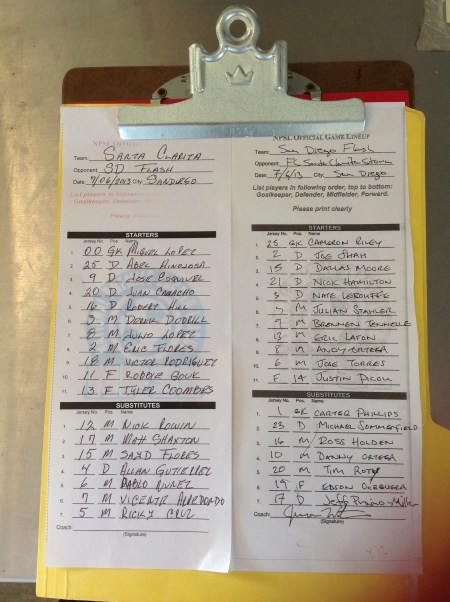 NPSL OFFICIAL
Team: SANTA CLARITA
Opponent: SD FLASH
Date: 7/06/2013 City: SANDIEGO
List players in
Goalkeeper, Defender,
STARTERS
Jersey No. Pos. Name
1. 00 GK MIGUEL LOPEZ
2. 25 D ABEL HINOJOSA
3. 9 D JOSE ESQUIVEL
4. 20 D JUAN CAMACHO
5. 16 D ROBERT HILL
6. 3 M DEREK DODRILL
7. 8 M JULIO LOPEZ
8. 2 M ERIC FLORES
9. 18 M VICTOR RODRIGUEZ
10. 11 F ROBBIE
11. 13 F TYLER COOMBES
SUBSTITUTES
Jersey No. Pos. Name
1. 12 M NICK
2. 17 M MATT SHAXTON
3. 15 M SAYD FLORES
4. 4 D ALLAN GUTIERREZ
5. 6 M PABLO
6. 7 M VICENTE ARREDONDO
7. 5 M RICKY CRUZ
Coach:
(Signature)
NPSL OFFICIAL GAME LINEUP
Team: San Diego Flash
Opponent: FC Santa Clarita Storm
Date: 7/6/13 City: San Diego
List players in following order, top to bottom:
Goalkeeper, Defender, Midfielder, Forward.
Please print clearly
STARTERS
Jersey No. Pos. Name
1. 25 GK CAMERON RILEY
2. 2 D JOE SHAH
3. 15 D DALLAS MOORE
4. 21 D NICK HAMILTON
5. 3 D NATE
6. M JULIAN STAHLER
7. M BRENNEN
8. 13 M ERIC LATON
9. 8 M ANDY ORTEGA
10. 6 M JOSE TORRES
11. F 14 JUSTIN
SUBSTITUTES
Jersey No. Pos. Name
1. 1 GK CARTER PHILLIPS
2. 23 D MICHAEL SOMMERFIELD
3. 16 M ROSS HOLDEN
4. 10 M DANNY ORTEGA
5. 20 M TIM ROTY
6. 19 F EDSON
7. 17 D Jeff
Coach:
(Signature)